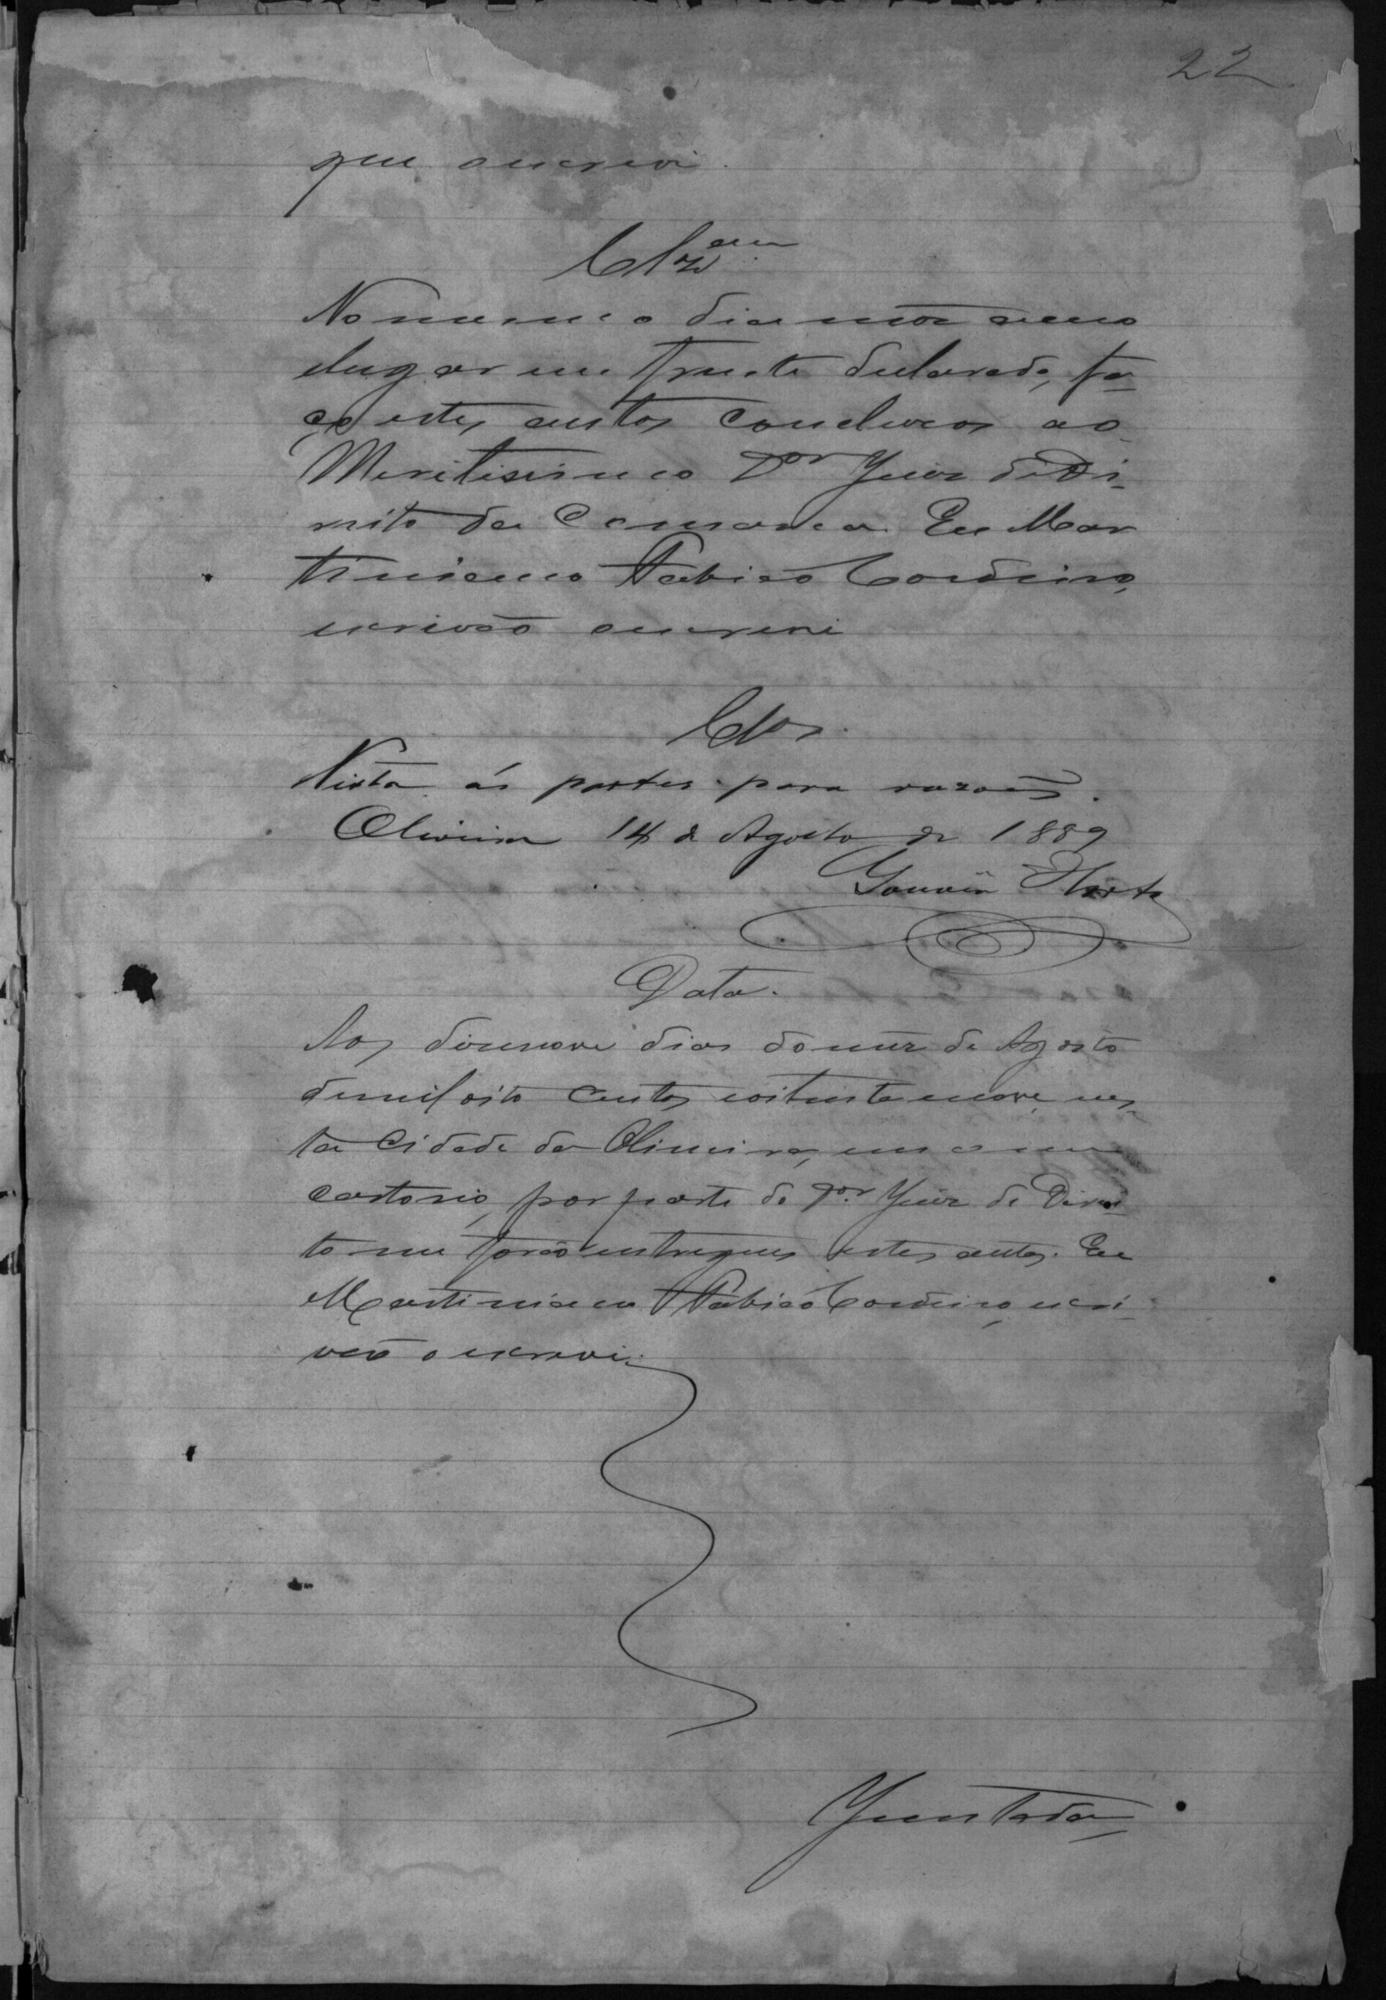 22
que o escrevi.
Clzam
No mesmo dia mez anno
elugar em frente declarado, fa-
ço estes autos concluzos ao
Meritissimo Dor Juiz de Di-
reito da Comarca. Eu Mar
tiniano Fabião Cordeiro,
escrivão o escrevi
Clos.
Vista ás partes para razoẽs.
Oliveira 14 de Agosto de 1889
Gouvêa Horta
Data.
Aos dezenove dias do mez de Agosto
de mil oito centos e oitenta e nove, nes-
ta Cidade da Oliveira, em o meu
cartorio, por parte do Dor Juiz de Direi-
to me forão entregues estes autos. Eu
Martiniano Fabião Cordeiro, escri-
vão o escrevi.
Juntada